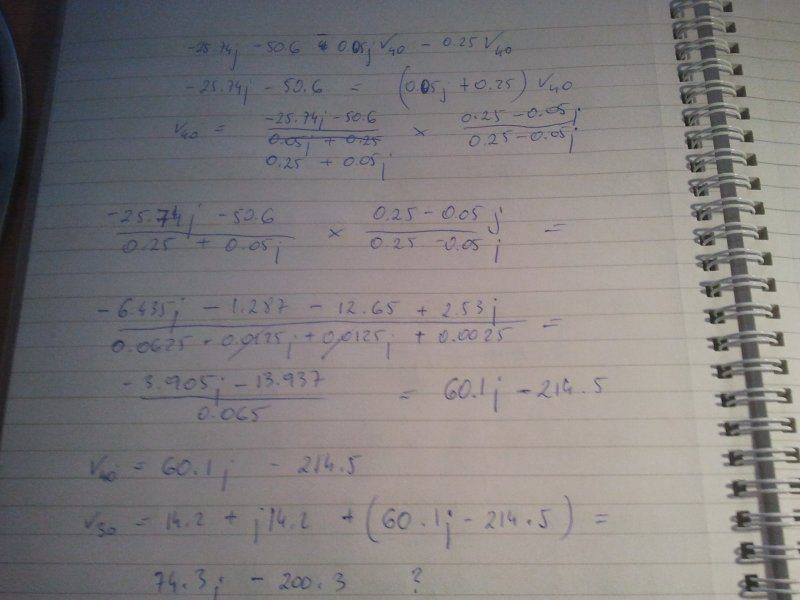 -25.74j - 50.6 = 0.05j V40 - 0.25 V40
-25.74j - 50.6 = (0.05j + 0.25) V40
V40 = -25.74j - 50.6 / 0.05j + 0.25 × 0.25 - 0.05j / 0.25 - 0.05j
0.25 + 0.05j
-25.74j - 50.6 / 0.25 + 0.05j × 0.25 - 0.05j / 0.25 - 0.05j =
-6.435j - 1.287 - 12.65 + 2.53j / 0.0625 - 0.0125j + 0.0125j + 0.0025 =
-3.905j - 13.937 / 0.065 = 60.1j - 214.5
V40 = 60.1j - 214.5
V30 = 14.2 + j14.2 + (60.1j - 214.5) =
74.3j - 200.3 ?